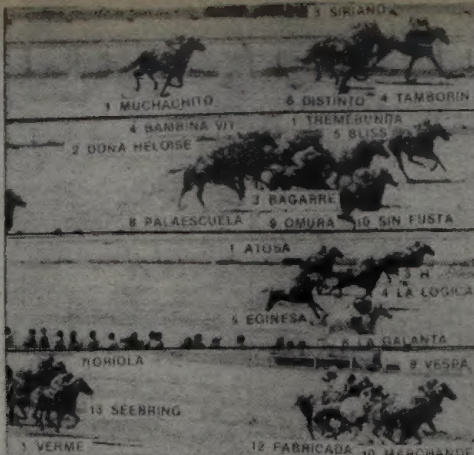 3 SIRIANO
1 MUCHACHITO
6 DISTINTO 4 TAMBORIN
4 BAMBINA VIT 1 TREMEBUNDA
5 BLISS
2 DOÑA HELOISE
3 BAGARRE
8 PALAESCUELA 9 OMURA 10 SIN FUSTA
1 ATOSA
3 H
4 LA LOGICA
5 EGINESA
6 LA GALANTA
7 ORIOLA
9 VESPA
13 SEEBRING
1 VERME
12 FABRICADA 10